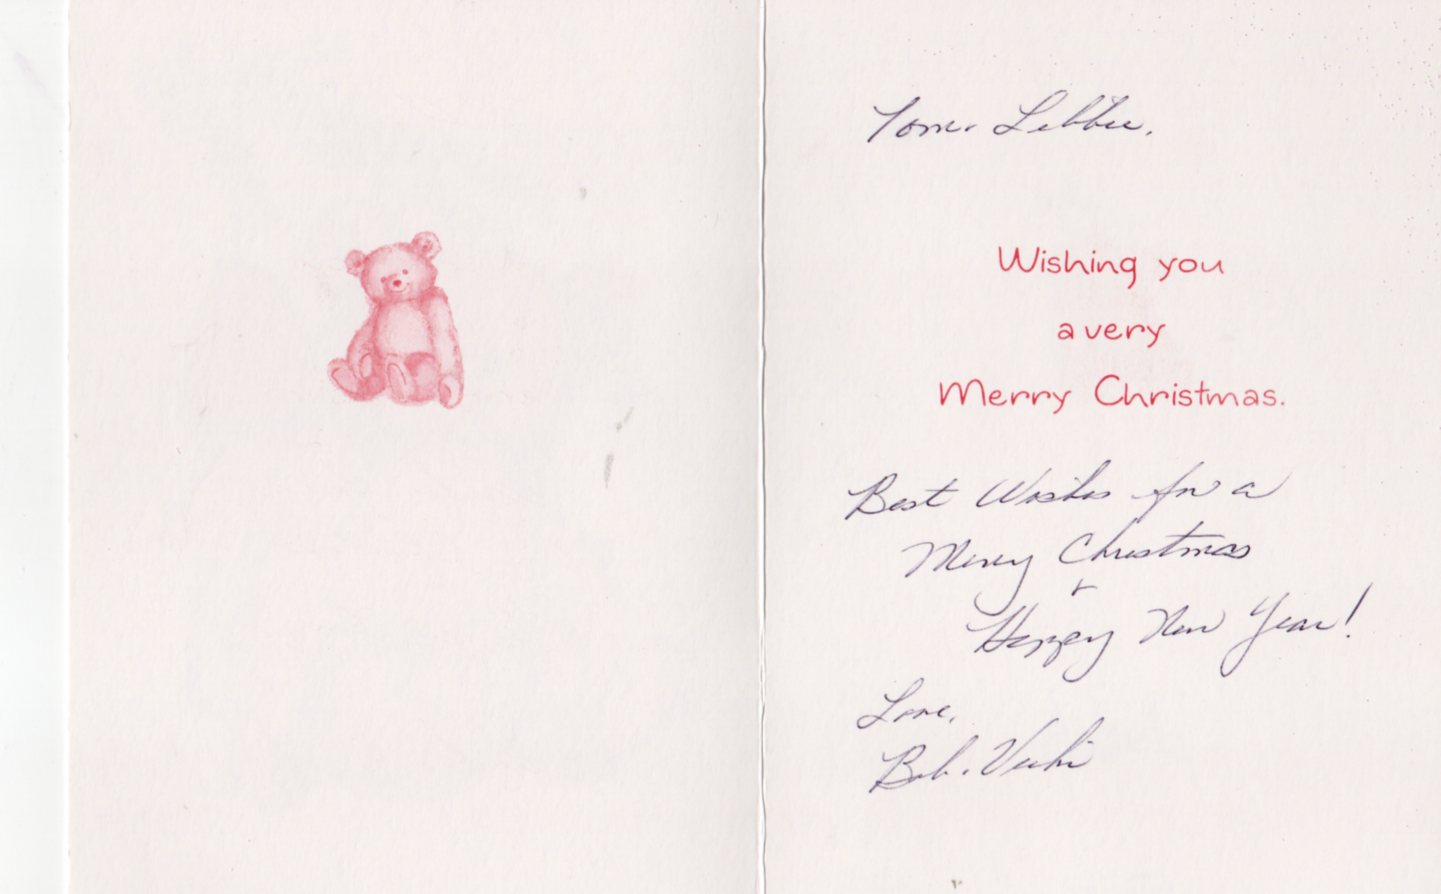 Tom. Libbie.
Wishing you
a very
Merry Christmas.
Best Wishes for a
Merry Christmas
+
Happy New Year!
Love,
Bob. Vicki